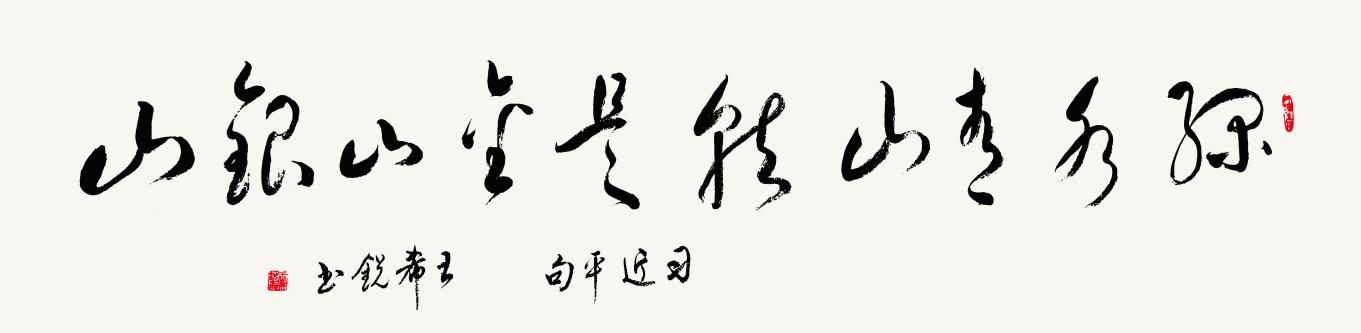 绿水青山就是金山银山
习近平句 王希锐书